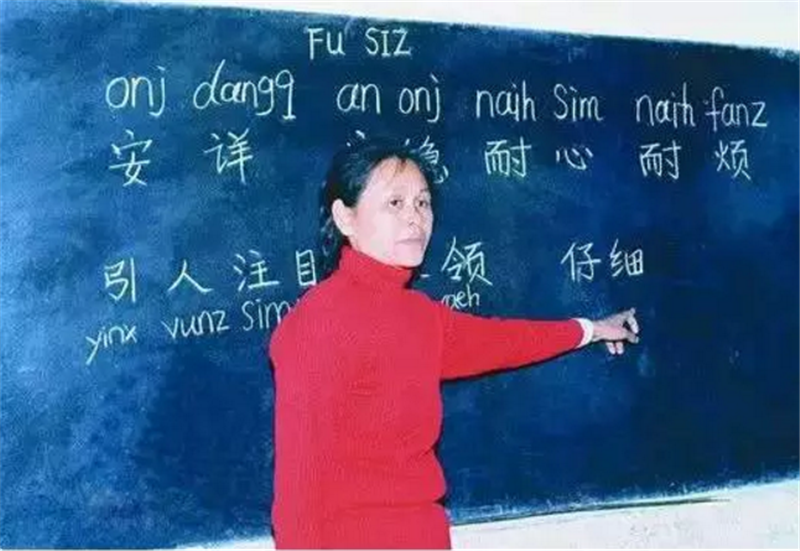 FU SIZ
onj dangq an onj naih Sim naih fanz
安详 稳 耐心 耐烦
引人注目 领 仔细
yinx vunz Sim